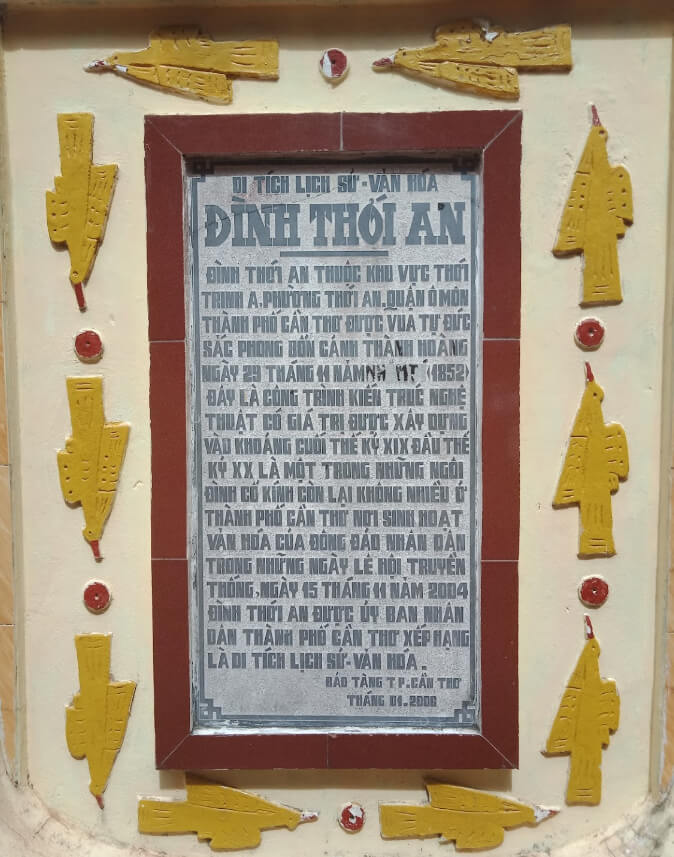 DI TÍCH LỊCH SỬ - VĂN HÓA
ĐÌNH THỚI AN
ĐÌNH THỚI AN THUỘC KHU VỰC THỚI
TRINH A, PHƯỜNG THỚI AN, QUẬN Ô MÔN
THÀNH PHỐ CẦN THƠ ĐƯỢC VUA TỰ ĐỨC
SẮC PHONG BỔN CẢNH THÀNH HOÀNG
NGÀY 29 THÁNG 11 NĂM (1852)
ĐÂY LÀ CÔNG TRÌNH KIẾN TRÚC NGHỆ
THUẬT CÓ GIÁ TRỊ ĐƯỢC XÂY DỰNG
VÀO KHOẢNG CUỐI THẾ KỶ XIX ĐẦU THẾ
KỶ XX LÀ MỘT TRONG NHỮNG NGÔI
ĐÌNH CỔ KÍNH CÒN LẠI KHÔNG NHIỀU Ở
THÀNH PHỐ CẦN THƠ NƠI SINH HOẠT
VĂN HÓA CỦA ĐÔNG ĐẢO NHÂN DÂN
TRONG NHỮNG NGÀY LỄ HỘI TRUYỀN
THỐNG, NGÀY 15 THÁNG 11 NĂM 2004
ĐÌNH THỚI AN ĐƯỢC ỦY BAN NHÂN
DÂN THÀNH PHỐ CẦN THƠ XẾP HẠNG
LÀ DI TÍCH LỊCH SỬ - VĂN HÓA.
BẢO TÀNG TP. CẦN THƠ
THÁNG 01.2006